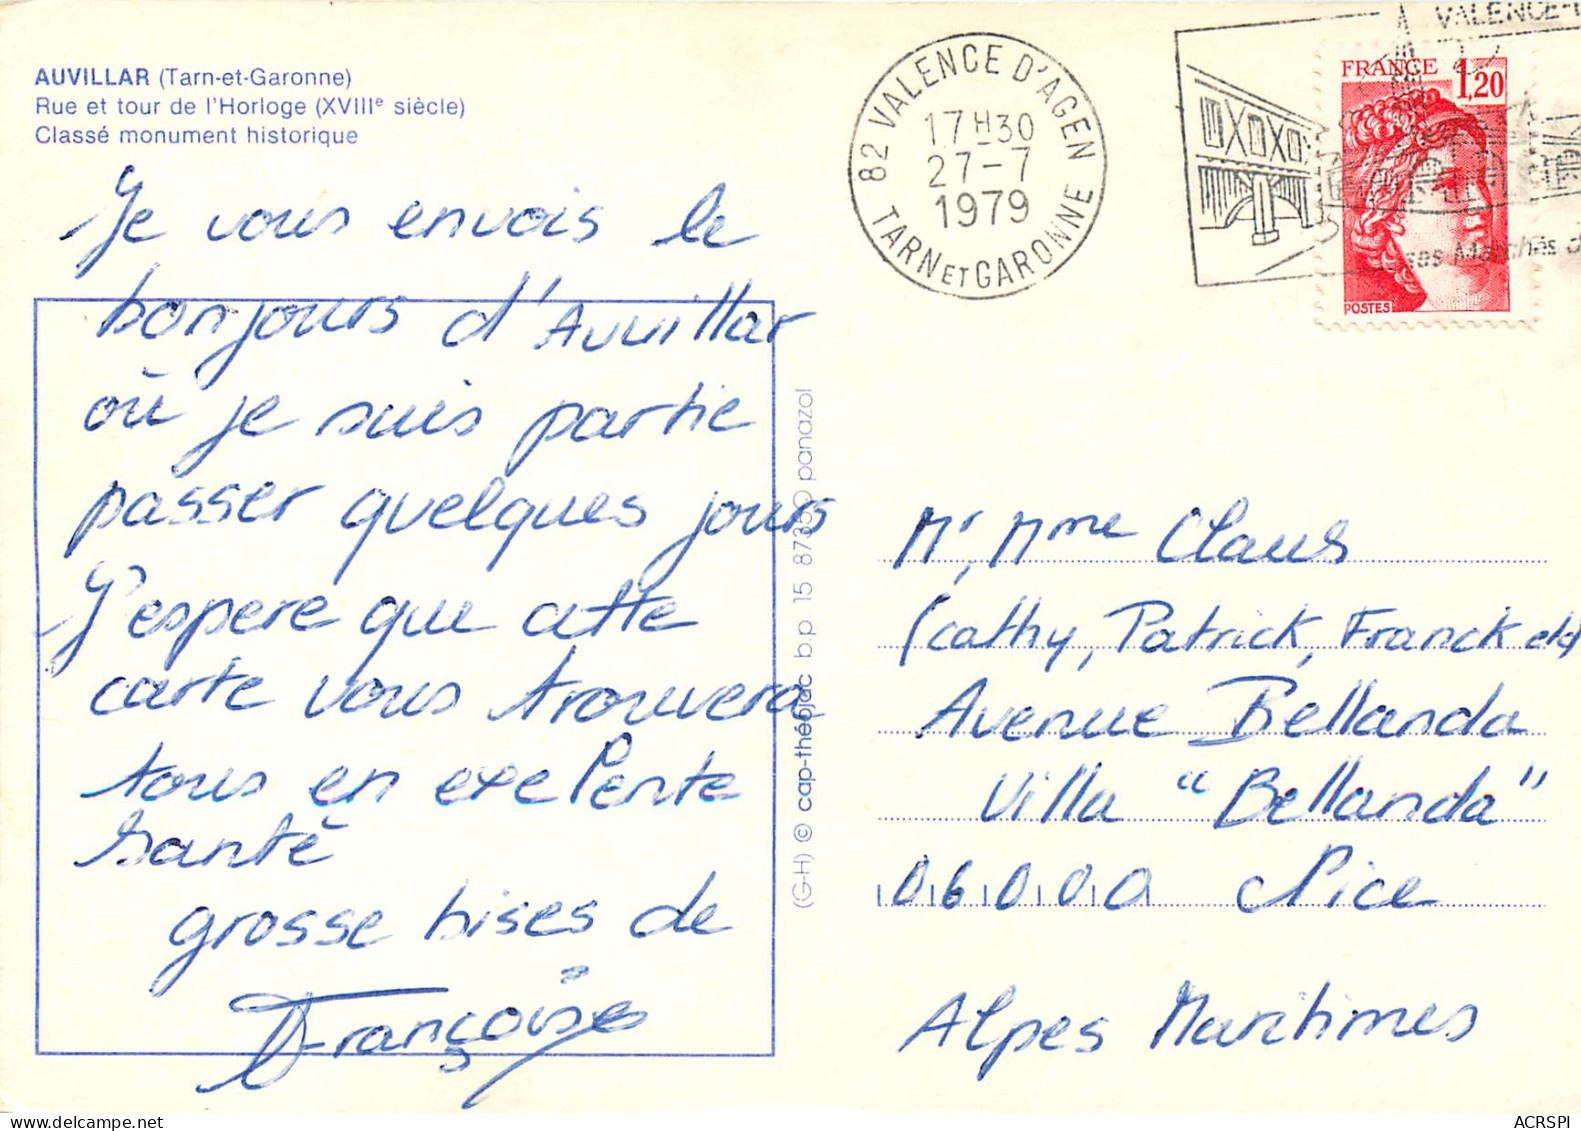 AUVILLAR (Tarn-et-Garonne)
Rue et tour de l'Horloge (XVIIIe siècle)
Classé monument historique
Je vous envois le
bonjours d'Auvillar
où je suis partie
passer quelques jours
J'espere que cette
carte vous trouvera
tous en exelente
santé
grosse bises de
Françoise
(G-H) © cap-théojac b.p 15 87350 panazol
82 VALENCE D'AGEN
17H30
27-7
1979
TARN ET GARONNE
VALENCE-
ses Marchés
FRANCE 1,20
POSTES
Mr, Mme Claus
(Cathy, Patrick, Franck et
Avenue Bellanda
Villa "Bellanda"
06000 Nice
Alpes Maritimes
ACRSPI